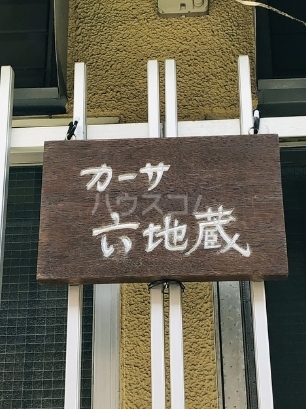 カーサ
ハウスコム
六地蔵